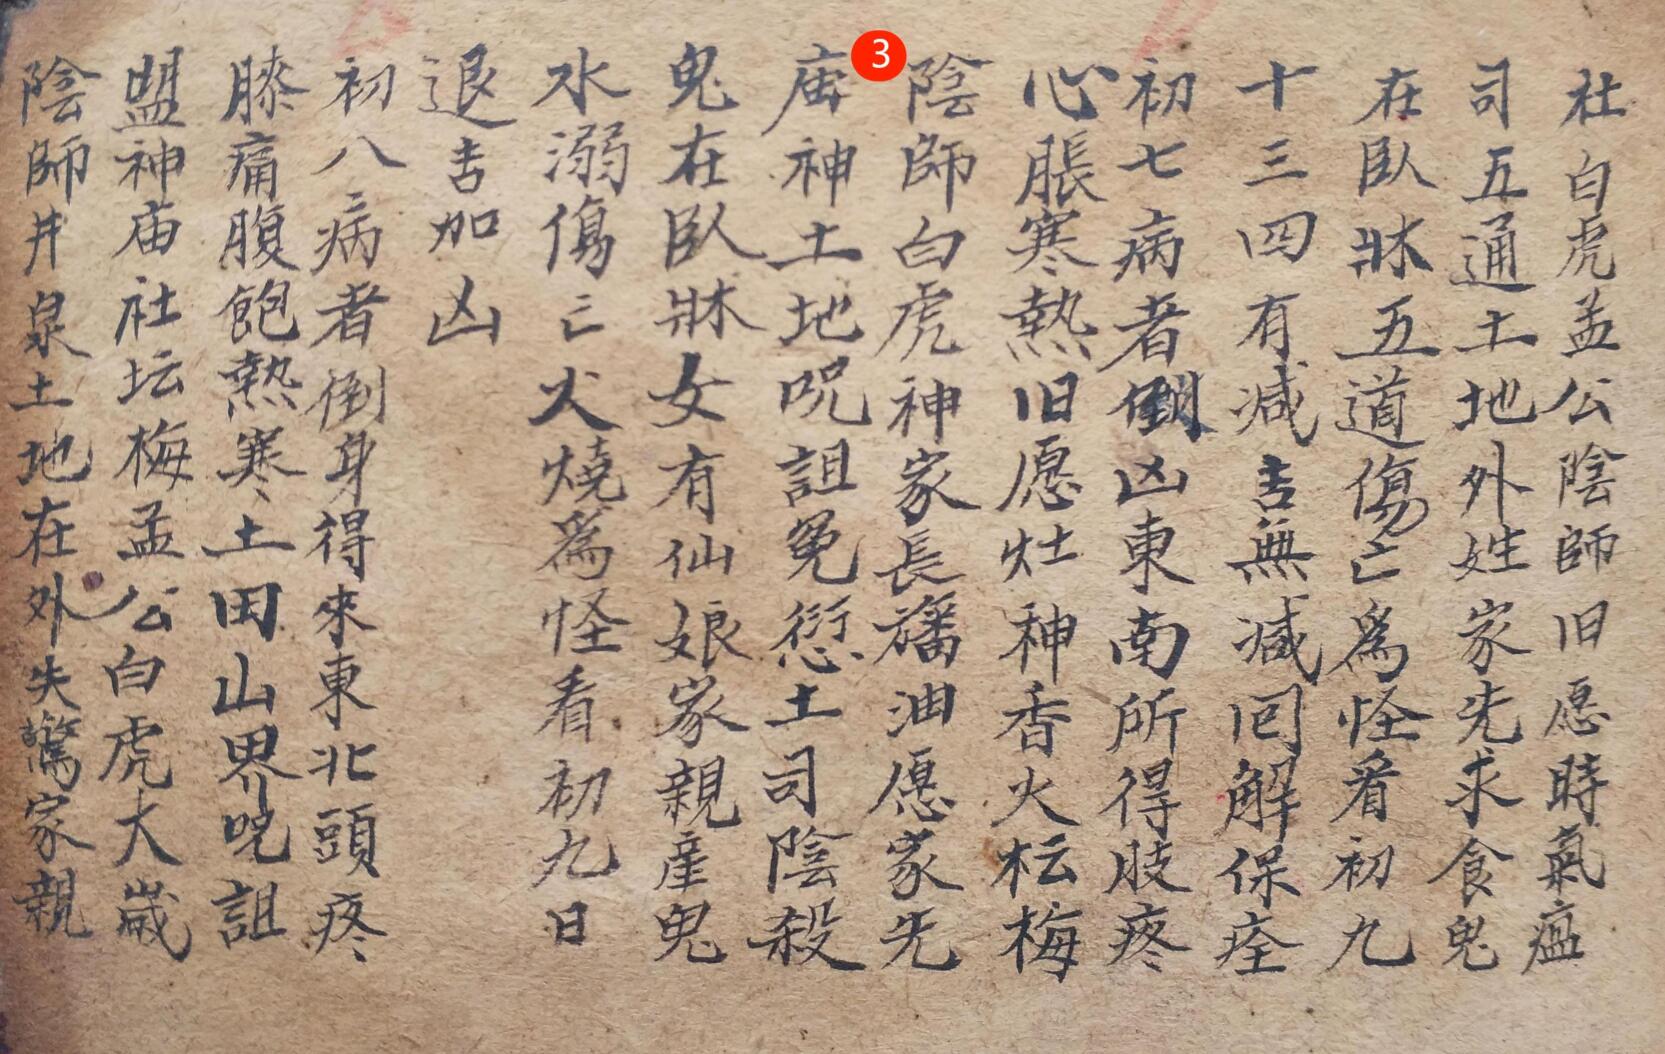 杜白虎孟公陰師旧愿時氣瘟
司五通土地外姓家先求食鬼
在臥牀五道傷亡為怪看初九
十三四有减吉無减囘解保痊
初七病者倒凶東南所得肢疼
心脹寒熱旧愿灶神香火枟梅
陰師白虎神家長旛油愿家先
庙神土地咒詛冤愆土司陰殺
鬼在臥牀女有仙娘家親產鬼
水溺傷亡火燒為怪看初九日
退吉加凶
初八病者倒身得來東北頭疼
膝痛腹飽熱寒土田山界咒詛
盟神庙社坛梅孟公白虎大歲
陰師井泉土地在外失驚家親
3